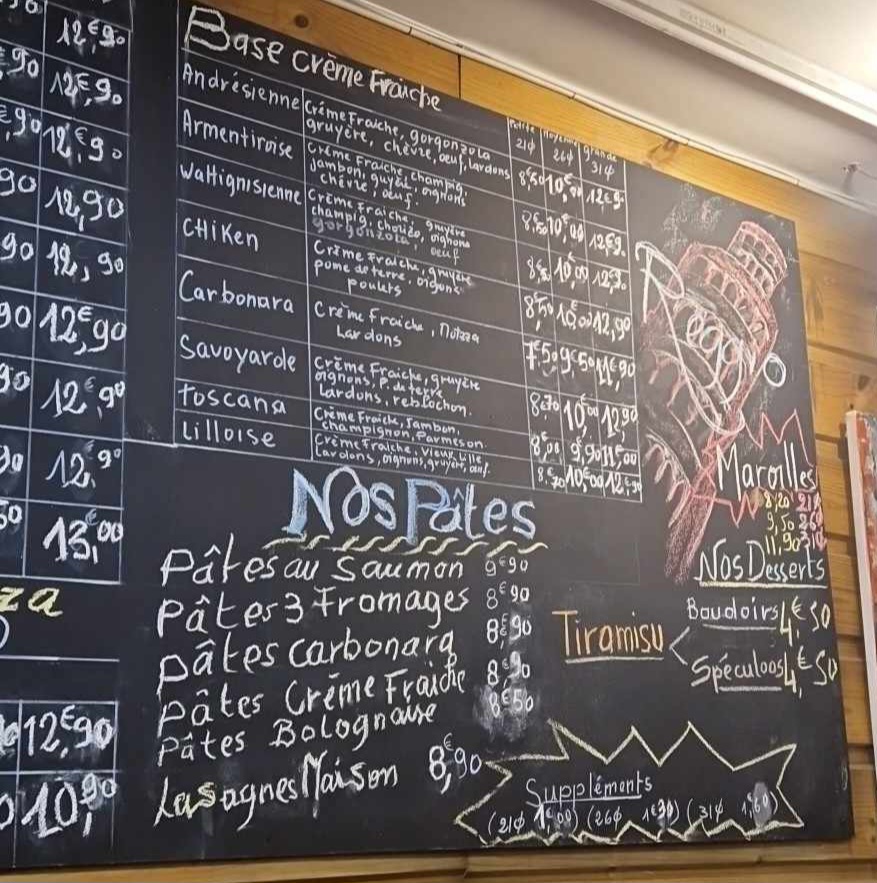 12€,90
12€,90
12€,90
90 12,90
90 12,90
90 12€,90
90 12€,90
90 12,90
50 13€,00
za
12€,90
10,90
Base crème Fraiche
Petite Moyenne grande
21¢ 26¢ 31¢
Andrésienne Crème Fraiche, gorgonzola
gruyère, chèvre, oeuf, Lardons 8,50 10€,00 12€,9
Armentiroise Crème Fraiche, champig,
jambon, guyèt, oignons
chèvre, oeuf. 8,50 10€,00 12€,9
Wattignisienne Crème Fraiche, gruyère
champig, chorizo, oignons
gorgonzola, oeuf 10,00 12,90
CHiKen Crème Fraiche, gruyère
pome de terre, oignons
poulets 8,50 10,00 12,90
Carbonara Crème Fraiche,
Lardons 7.50 9€.50 11€,90
Savoyarde Crème Fraiche, gruyère
oignons, P. de terre
Lardons, reblochon. 8€70 10,00 12,90
toscana Crème Fraiche, Jambon,
champignon, Parmeson. 8€,00 9,90 11€,00
Lilloise Crème Fraiche, Vieux Lille
Lardons, oignons, gruyère, oeuf. 8.€70 10€,00 12€,90
Nos Pâtes
Pâtes au Saumon 9€90
Pâtes 3 Fromages 8€90
pâtes carbonara 8€90
pâtes Crème Fraiche 8€,90
Pâtes Bolognaise 8€50
Lasagnes Maison 8€,90
Maroilles
8,20 21¢
9,50 26¢
11,90 31¢
Nos Desserts
Tiramisu
Boudoirs 4,€50
Speculoos 4,€50
Suppléments
(21¢ 1€,00) (26¢ 1€30) (31¢ 1,60)